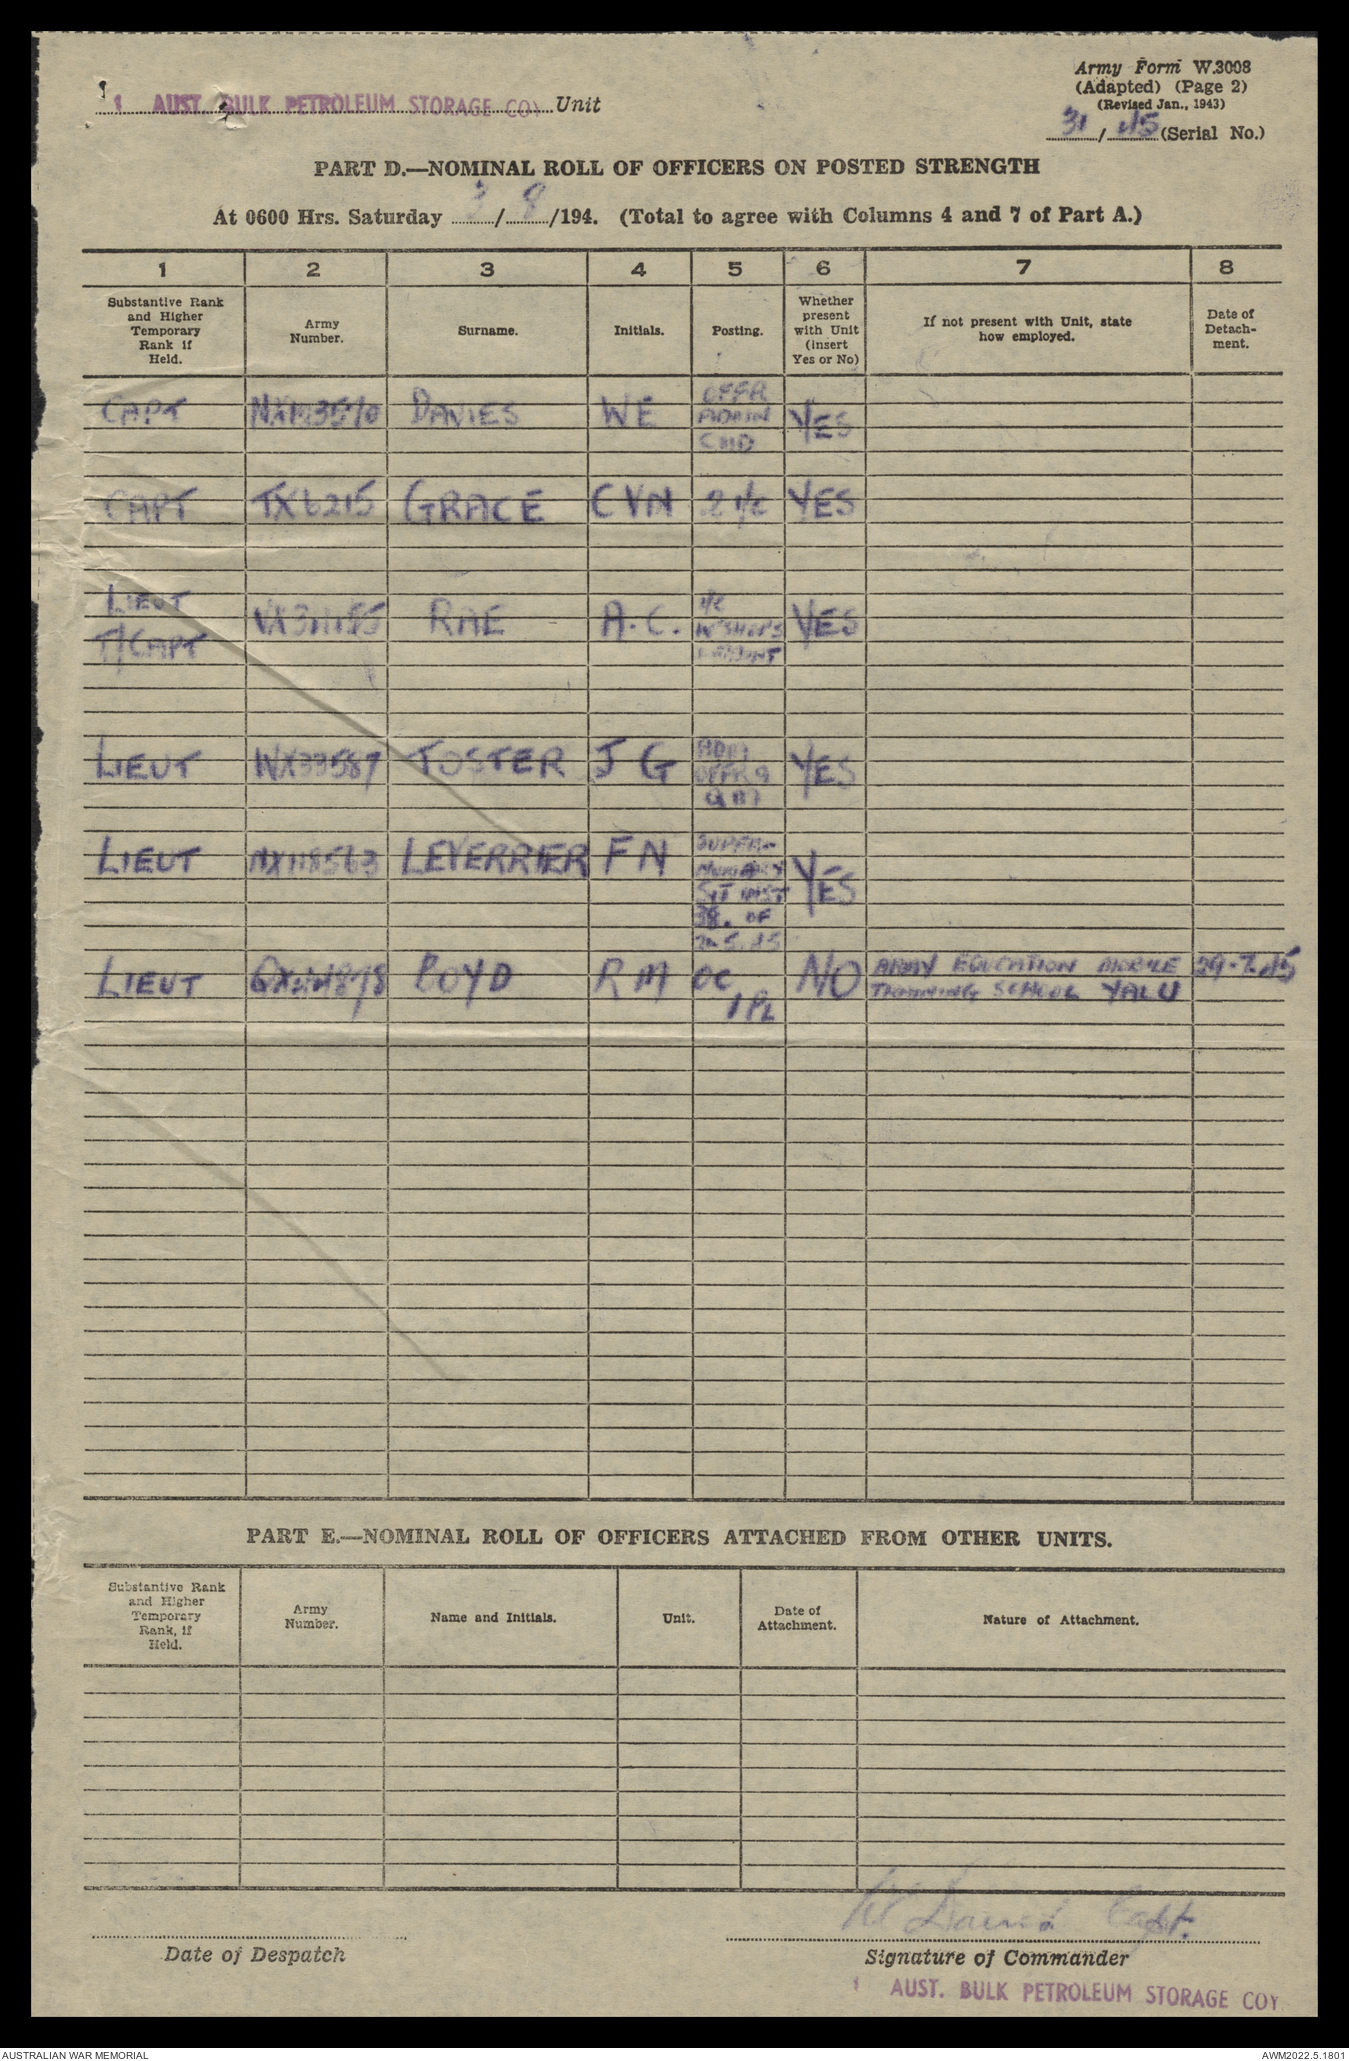 1 AUST. BULK PETROLEUM STORAGE COY Unit
Army Form W.3008
(Adapted) (Page 2)
(Revised Jan., 1943)
31/45 (Serial No.)
PART D.—NOMINAL ROLL OF OFFICERS ON POSTED STRENGTH
At 0600 Hrs. Saturday 3/8/194. (Total to agree with Columns 4 and 7 of Part A.)
1 2 3 4 5 6 7 8
Substantive Rank
and Higher
Temporary
Rank if
Held.
Army
Number.
Surname.
Initials.
Posting.
Whether
present
with Unit
(insert
Yes or No)
If not present with Unit, state
how employed.
Date of
Detach-
ment.
CAPT DAVIES WE OFFR
ADMIN
CMD YES
CAPT TX6215 GRACE CVN 2 I/C YES
LIEUT
T/CAPT RAE A.C. I/C
W'SHOPS
YES
LIEUT WX33587 TOSTER J G
YES
LIEUT NX118563 LEVERRIER FN SUPER-
NUMARY
YES
LIEUT BOYD RM OC
1 PL NO ARMY EDUCATION MOBILE
TRAINING SCHOOL YALU 29.7.45
PART E.—NOMINAL ROLL OF OFFICERS ATTACHED FROM OTHER UNITS.
Substantive Rank
and Higher
Temporary
Rank, if
Held.
Army
Number.
Name and Initials.
Unit.
Date of
Attachment.
Nature of Attachment.
Davies Capt.
Date of Despatch
Signature of Commander
1 AUST. BULK PETROLEUM STORAGE COY
AUSTRALIAN WAR MEMORIAL
AWM2022.5.1801